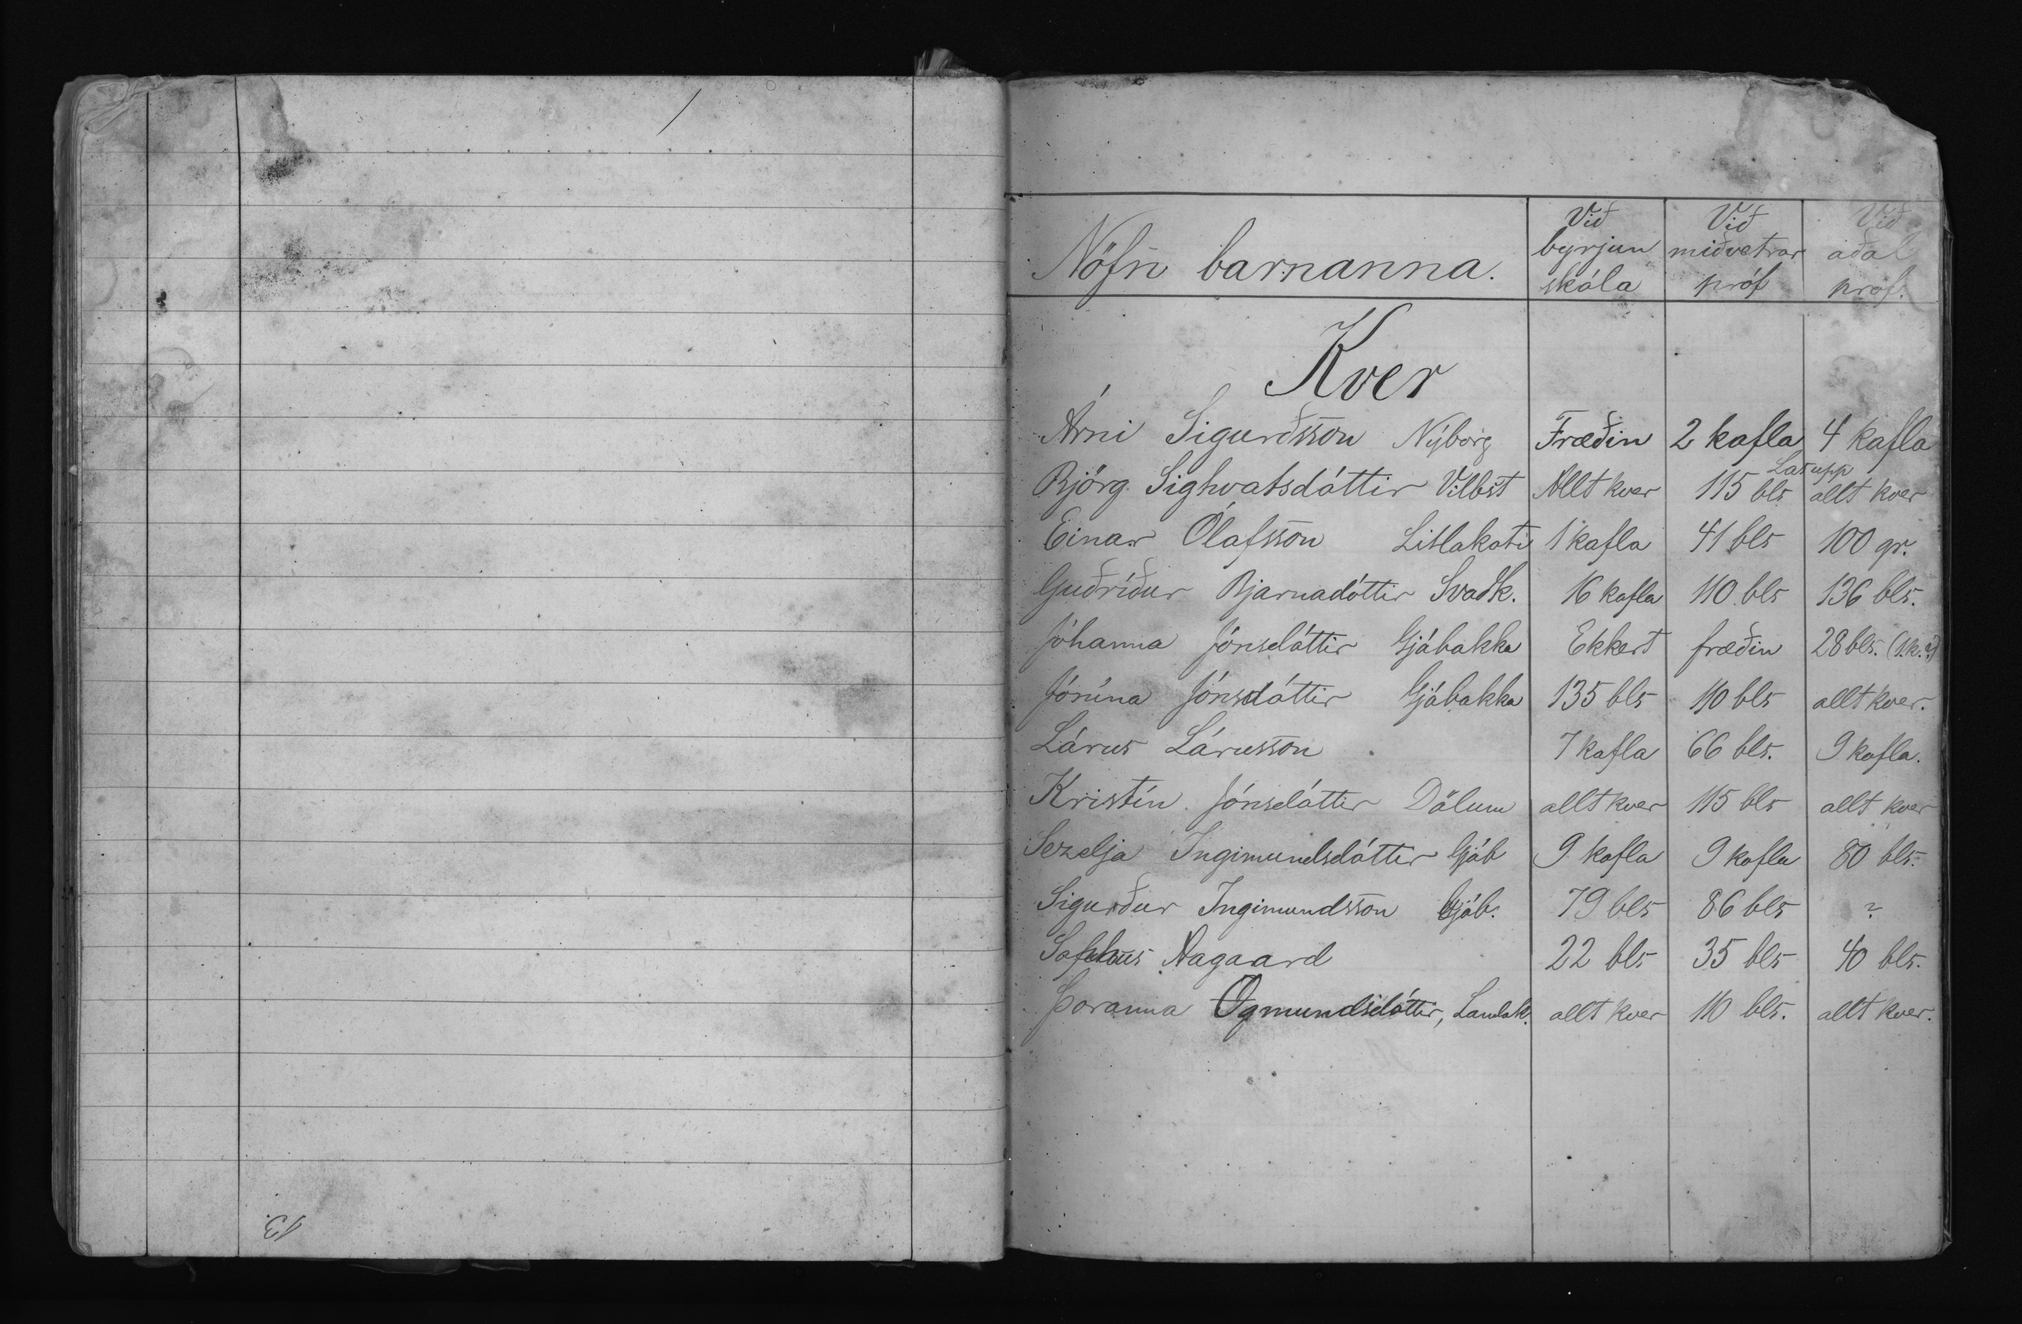 13.
Nöfn barnanna.
Við byrjun skóla
Við miðvetrar próf
Við aðal próf.
Kver
Árni Sigurðsson Nýborg Fræðin 2 kafla 4 kafla
Björg Sighvatsdóttir Vilbst Allt kver 115 bls Las upp allt kver
Einar Ólafsson Litlakoti 1 kafla 41 bls 100 gr.
Guðríður Bjarnadóttir Svaðk. 16 kafla 110 bls 136 bls.
Jóhanna Jónsdóttir Gjábakka Ekkert fræðin 28 bls.
Jónína Jónsdóttir Gjábakka 135 bls 110 bls allt kver.
Lárus Lárusson 7 kafla 66 bls. 9 kafla.
Kristín Jónsdóttir Dölum allt kver 115 bls allt kver
Sezelja Ingimundsdóttir Gjáb 9 kafla 9 kafla 80 bls.
Sigurður Ingimundsson Gjáb. 79 bls 86 bls ?
Sofhus Aagaard 22 bls 35 bls 40 bls.
Þoranna Ögmundsdóttir, Landak. allt kver 110 bls. allt kver.